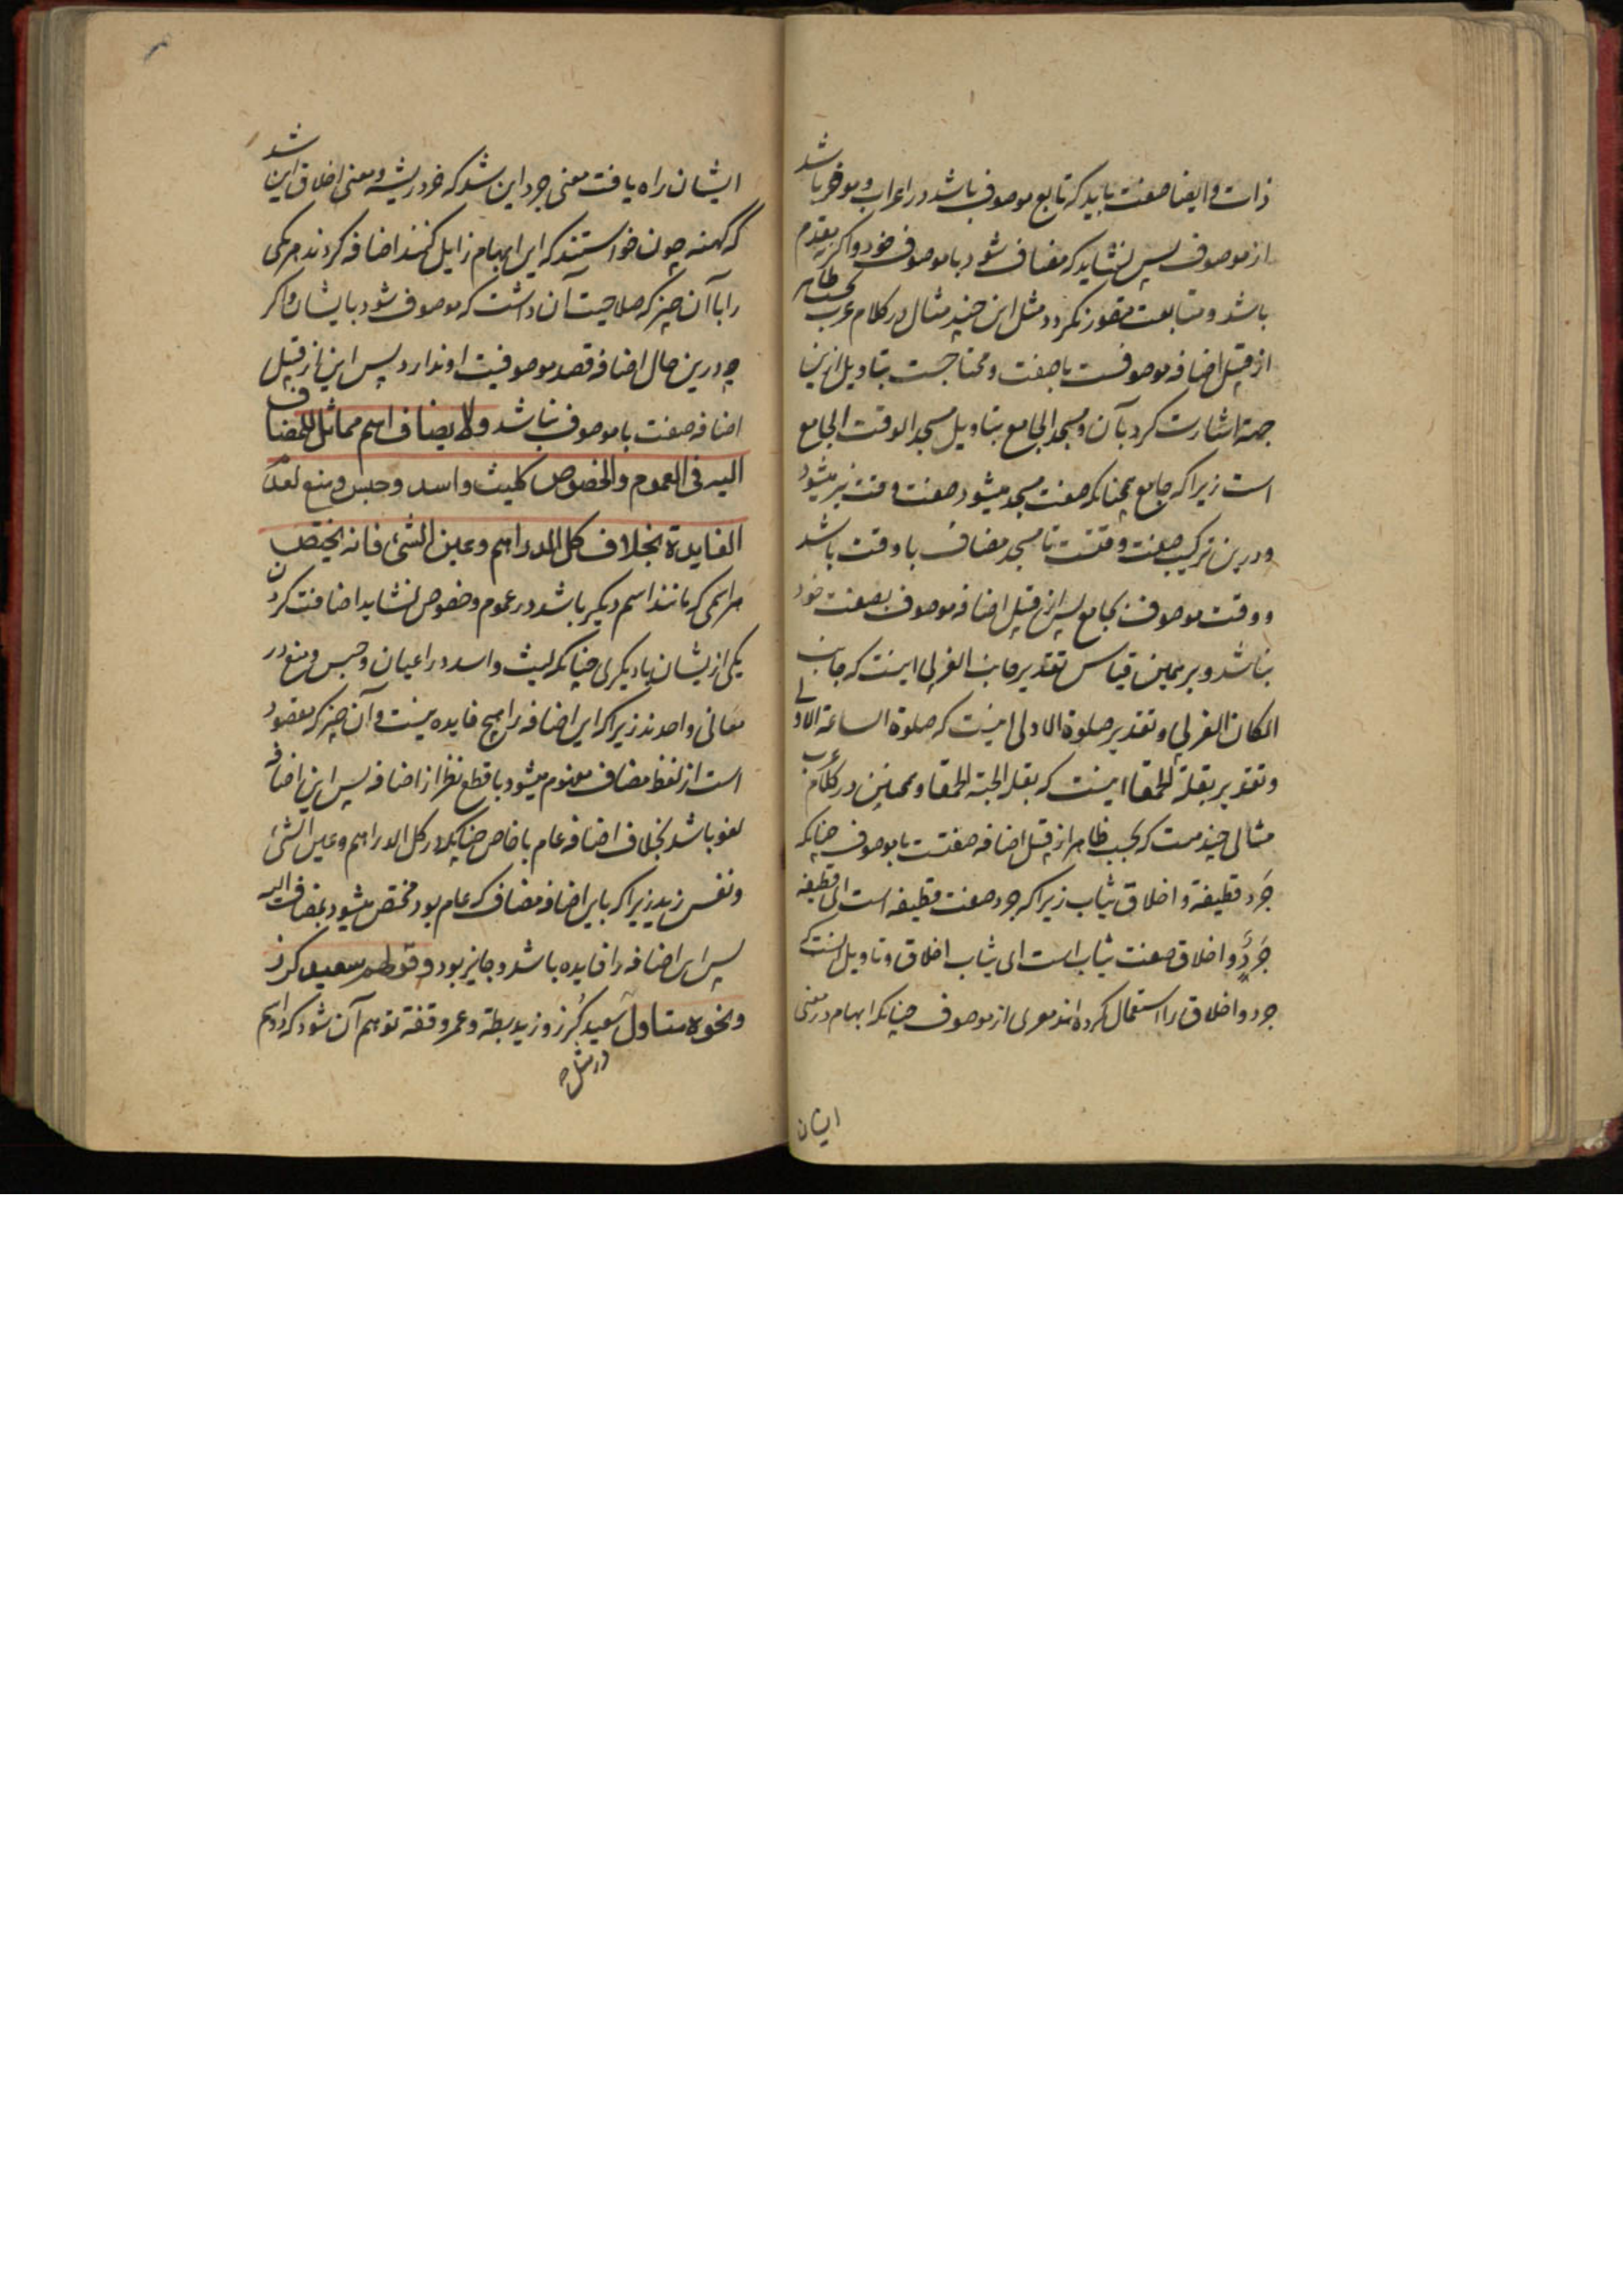 ذات و ایضا صفت باید که تابع موصوف باشد در اعراب و موخر باشد
از موصوف پس نشاید که مضاف شود با موصوف خود و اگر نه مقدم
باشد و متابعت متصور نگردد مثل این چند مثال در کلام عرب بحسب ظاهر
از قبیل اضافه موصوفست با صفت و محتاجست بتاویل ازین
جهة اشارت کرد بآن و مسجد الجامع بتاویل مسجد الوقت الجامع
است زیرا که جامع همچنانکه صفت مسجد میشود صفت وقت نیز میشود
و درین ترکیب صفت وقتست تا مسجد مضاف با وقت باشد
و وقت موصوف بجامع پس از قبیل اضافه موصوف بصفت خود
نباشد و برهمین قیاس تقدیر جانب الغربی اینست که جانب
المکان الغربی و تقدیر صلوة الاولی اینست که صلوة الساعة الاولی
و تقدیر بقلة الحمقا اینست که بقلة الحبة الحمقا و همچنین در کلام عرب
مثالی چند هست که بحسب ظاهر از قبیل اضافه صفتست با موصوف چنانکه
جرد قطیفة و اخلاق ثیاب زیرا که جرد صفت قطیفه است ای قطیفة
جرد و اخلاق صفت ثیاب است ای ثیاب اخلاق و تاویل اینست که
جرد و اخلاق را استعمال کرده اند معری از موصوف چنانکه ابهام در معنی
ایشان
ایشان راه یافت معنی جرد این شد که خود ریشه و معنی اخلاق این شد
که کهنه چون خواستند که این ابهام زایل کنند اضافه کردند هر یکی
را با آن چیز که صلاحیت آن داشت که موصوف شود بایشان و اگر
چه درین حال اضافه قصد موصوفیت او ندارد پس این از قبیل
اضافه صفت با موصوف نباشد ولا یضاف اسم مماثل للمضاف
الیه فی العموم والخصوص کلیث واسد وحبس ومنع لعدم
الفایدة بخلاف کل الدراهم وعین الشئ فانه یختص
هر اسمی که مانند اسم دیگر باشد در عموم و خصوص نشاید اضافت کردن
یکی ازیشان با دیگری چنانکه لیث و اسد در اعیان و حبس و منع در
معانی واحدند زیرا که این اضافه را هیچ فایده نیست و آن چیز که مقصود
است از لفظ مضاف مفهوم میشود با قطع نظر از اضافه پس این اضافه
لغو باشد بخلاف اضافه عام با خاص چنانکه در کل الدراهم و عین الشئ
و نفس زید زیرا که باین اضافه مضاف که عام بود مختص میشود بمضاف الیه
پس این اضافه را فایده باشد و جایز بود وقولهم سعید کرز
ونحوه متاول سعید کرز و زید بطة و عمرو قفة توهم آن شود که دو اسم
در مثل